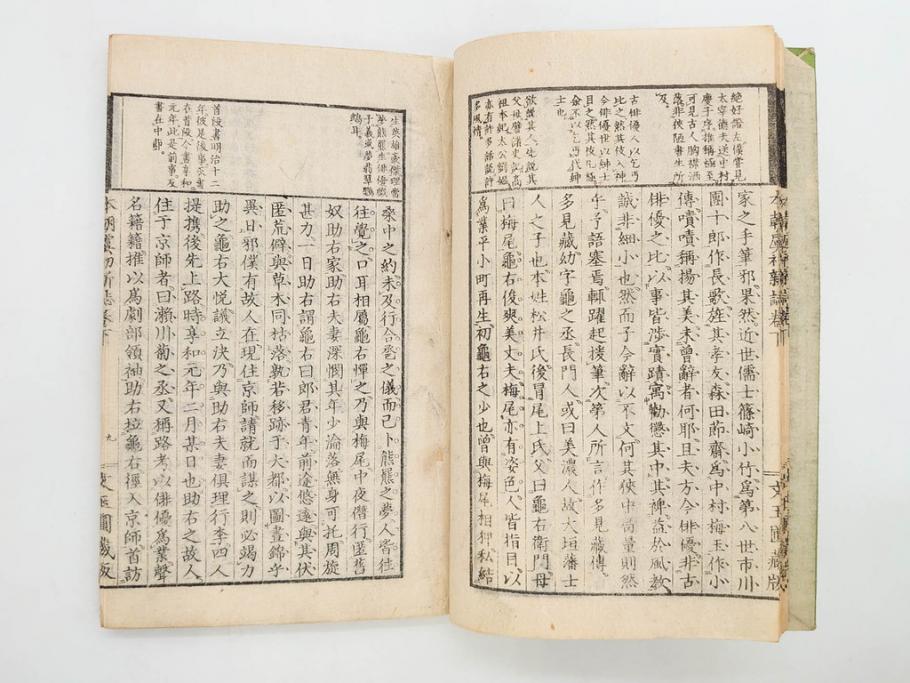 絶好證左僕嘗見
太宰德夫送中村
慶子序推稱極至
可見古人胸襟洒
落非狹陋書生所
及。
古俳優人以乞丐
比之然其技入神
今俳優世以紳士
目之然其技凡
余不以乞丐代紳
士也
欲敘其人先敘其
父母譬諸史記高
祖本紀太公劉媼
亦有許多話說許
多風情
家之手筆邪果然近世儒士篠崎小竹爲第八世市川
團十郎作長歌旌其孝友森田節齋爲中村梅玉作小
傳嘖嘖稱揚其美未曾辭者何耶且夫方今俳優非古
俳優之比以事皆渉實蹟寓勸懲其中其裨益於風教
誠非細小也然而子今辭以不文何其狹中尚量則然
乎予語塞焉輙躍起援筆次第人所言作多見藏傳
多見藏幼字龜之丞長門人或曰美濃人故大垣藩士
人之子也本姓松井氏後冒尾上氏父曰龜右衛門母
曰梅尾龜右俊爽美丈夫梅尾亦有姿色人皆指目以
爲業平小町再生初龜右之少也曾與梅尾相狎私結
文玉圃藏版
生英雄豪傑理當
夢熊羆生俳優職
于義或夢翡翠鸚
鵡耳。
普陵書明治十二
年彼是後事此書
在普陵享和
元年此是前事反
書在中卿。
桑中之約未及行合巹之儀而已卜熊羆之夢人皆往
往覺之口耳相屬龜右憚之乃與梅尾中夜僭行匿舊
奴助右家助右夫妻深憫其年少淪落無身可托周旋
甚力一日助右謂龜右曰郎君青年前途悠遠與其伏
匿荒僻與草木同枯落孰若移跡于大都以圖晝錦乎
異日邪僕有故人在現住京師請就而謀之則必竭力
助之龜右大悦議立決乃與助右夫妻倶理行李四人
提携後先上路時享和元年二月某日也助右之故人
住于京師者曰瀬川菊之丞又稱路考以俳優爲業聲
名籍籍推以爲劇部領袖助右拉龜右徑入京師首訪
本朝虞初新志卷下
九
文玉圃藏版